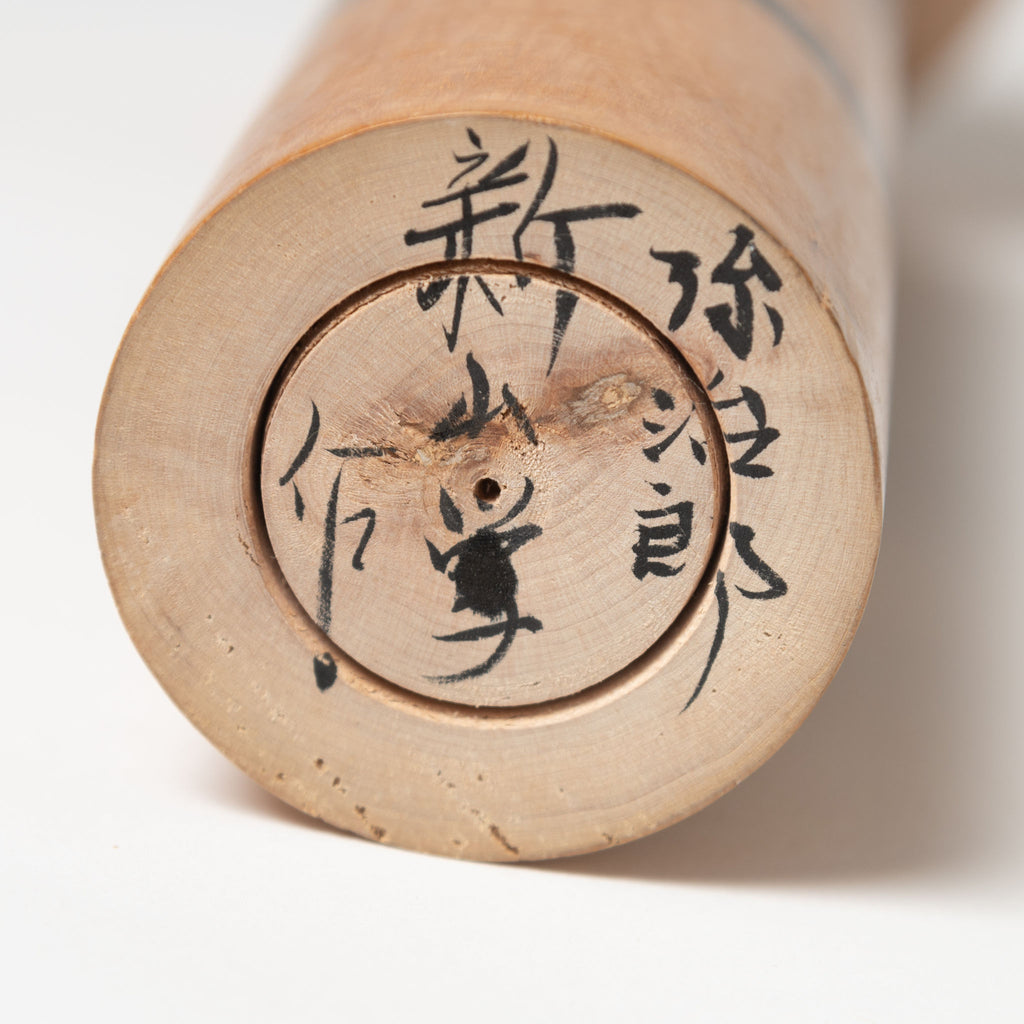 弥治郎
新山学
作.